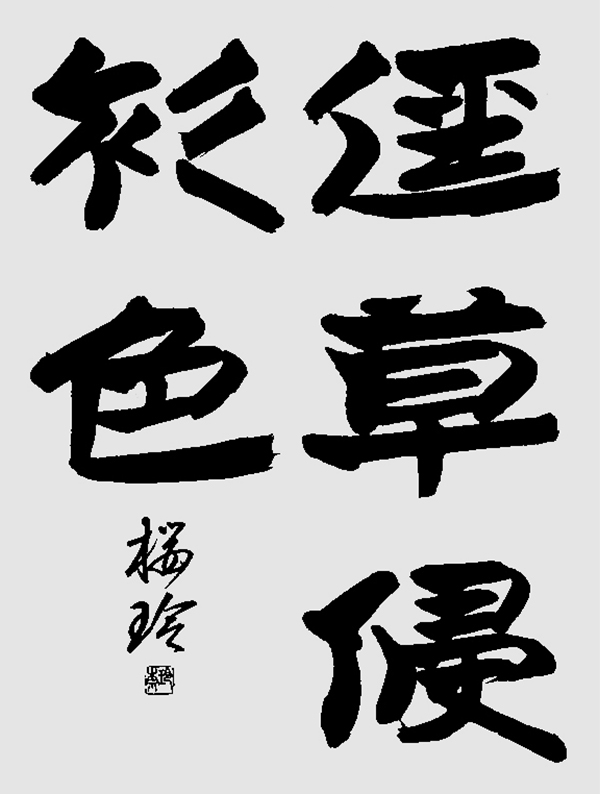 徑草侵
衫色
楊玲